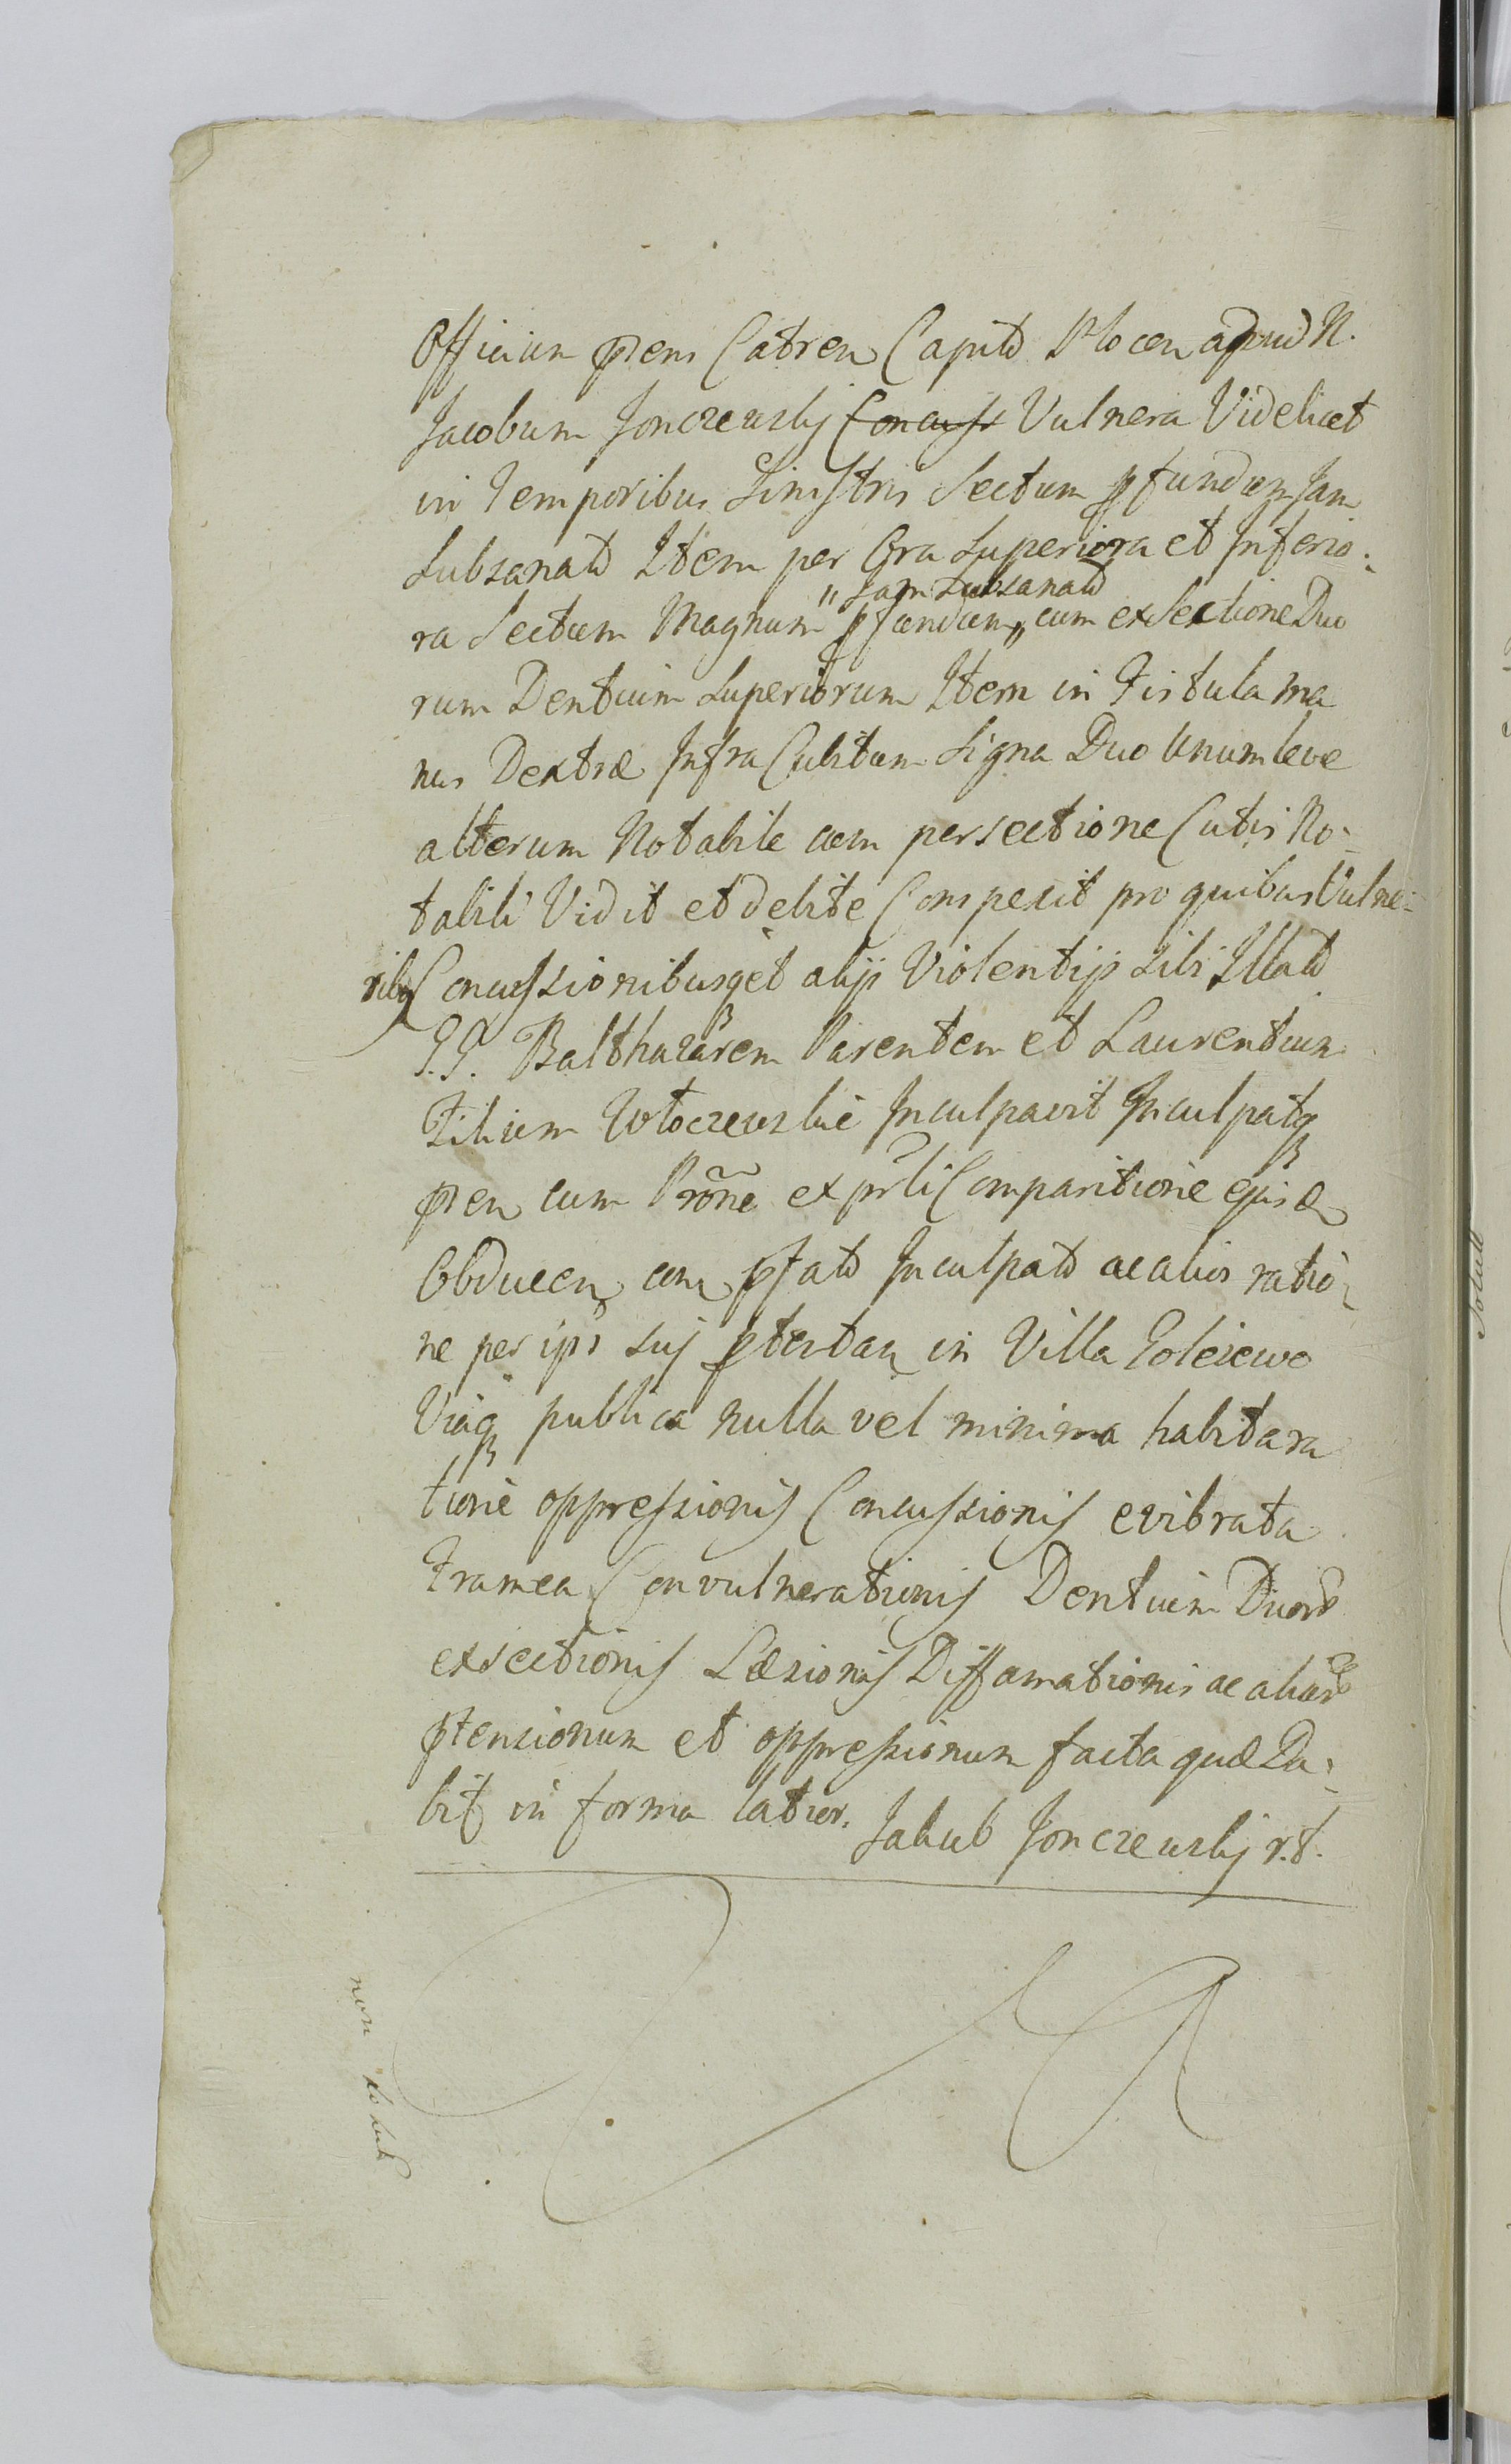 Officium pñs Castren Capitlo Plocen apud N.
Jacobum Jonczewskij Concuss Vulnera Videlicet
in Temporibus Sinistris Sectum pfundum Jam
Subsanatū Item per Ora Superiora et Inferio-
" Jam Subsanatū
ra Sectum Magnum pfundum „ cum exsectione Duo
rum Dentium Superiorum Item in Fistula ma
nus Dextræ Infra Cubitum Signa Duo Unum leve
alterum Notabile cum persectione Cutis No-
tabili Vidit et debite Conspexit pro quibus Vulne-
ribq Concussionibusqȝ et alijs Violentijs sibi Illatis
G.G. Balthazarem Parentem et Laurentium
Filium Włoczewskie Inculpavit Inculpatqȝ
pñ cum Prõne ex prsli Comparitione ejusd
Obducen cum pfatis Inculpatis ac alios ratio-
ne per ipsos suj ptestan in Villa Golejewo
Viaqȝ publica nulla vel minima habita ra
tione oppressionis Concussionis evibrata
Framea Convulnerationis Dentium Duorū
exsectionis Læsionis Diffamationis ac aliarū
ptensionum et oppressionum facta quæ Da-
bit in forma latior. Jakub Jonczewskij r.t.
non solut
Solut